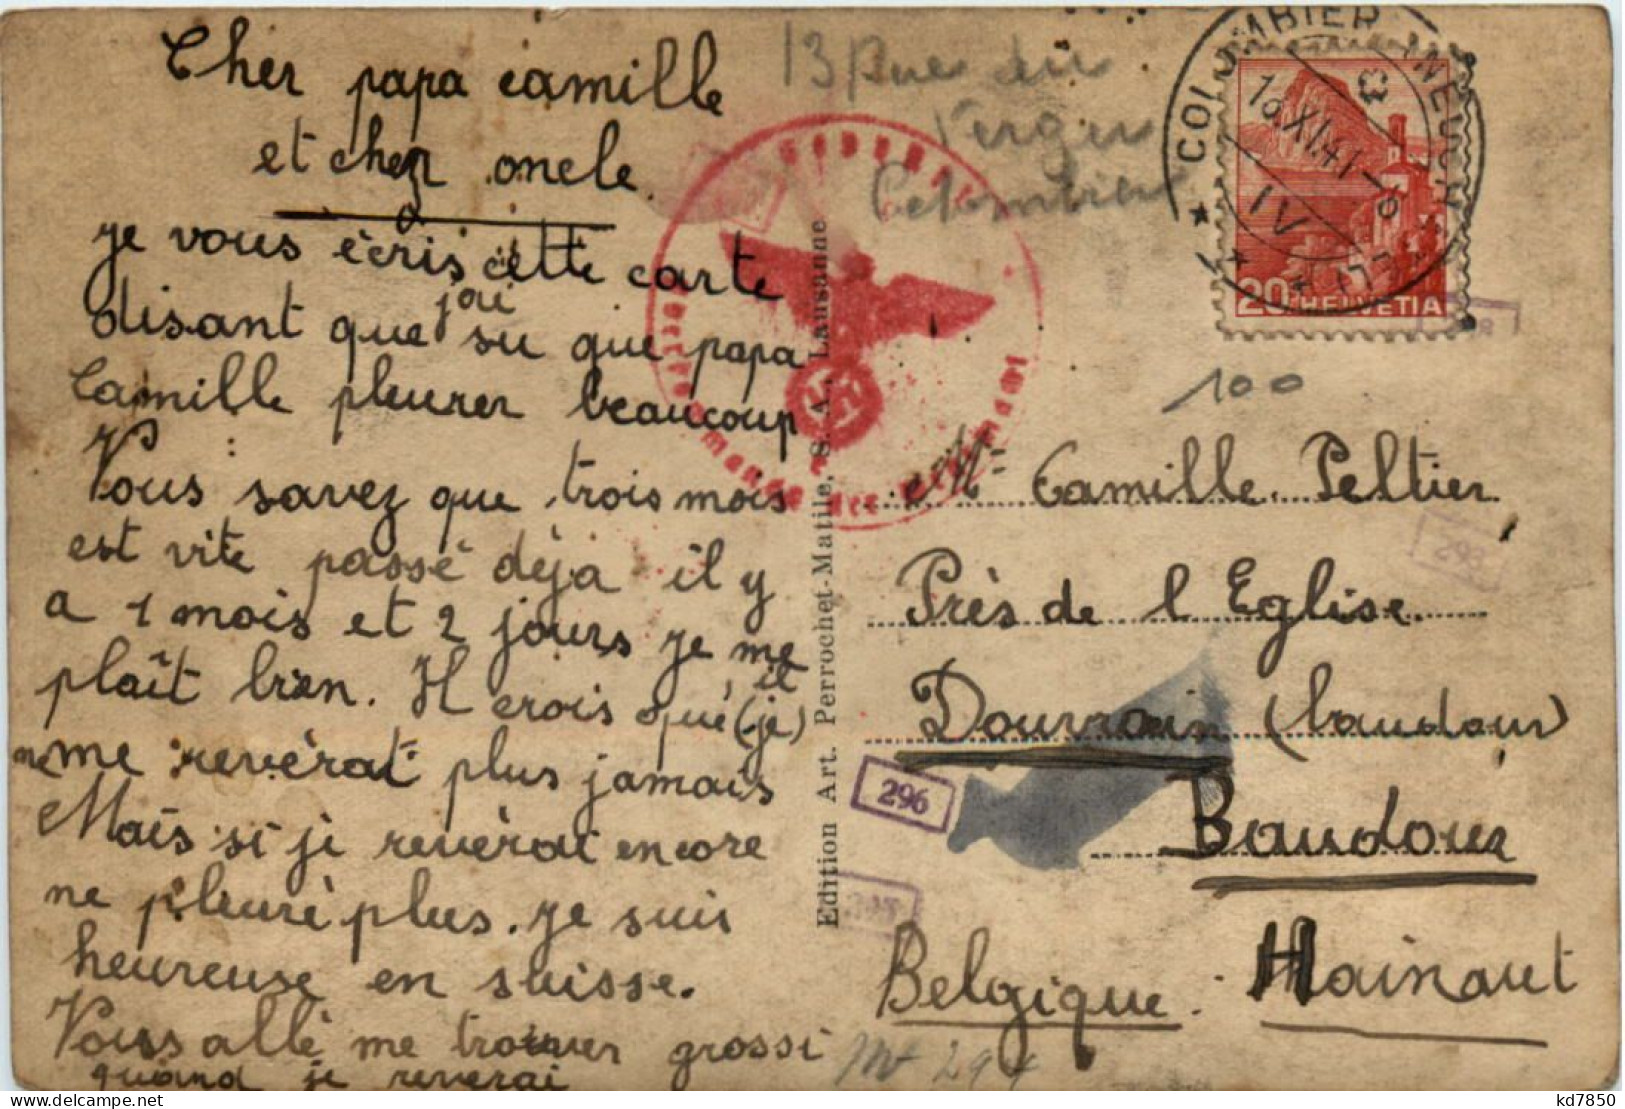 Cher papa camille
et cher oncle.
je vous écris cette carte
disant que j'ai su que papa
Camille pleurer beaucoup
Vous savez que trois mois
est vite passé déja il y
a 1 mois et 2 jours je me
plaît bien. Il crois que (je) il
me reverat plus jamais
Mais si je reverai encore
ne pleuré plus. je suis
heureuse en suisse.
Vous allé me trouver grossi
quand je reverai
13 Rue du
Verger
Colombier
COLOMBIER (NEUCHÂTEL)
10.XI.41
IV
20 HELVETIA
Oberkommando der Wehrmacht
Edition Art. Perrochet-Matile, S. A., Lausanne
100
Mr Camille Peltier
Près de l Eglise.
Douvrain (baudour)
Baudour
Belgique. Hainaut
296
293
kd7850